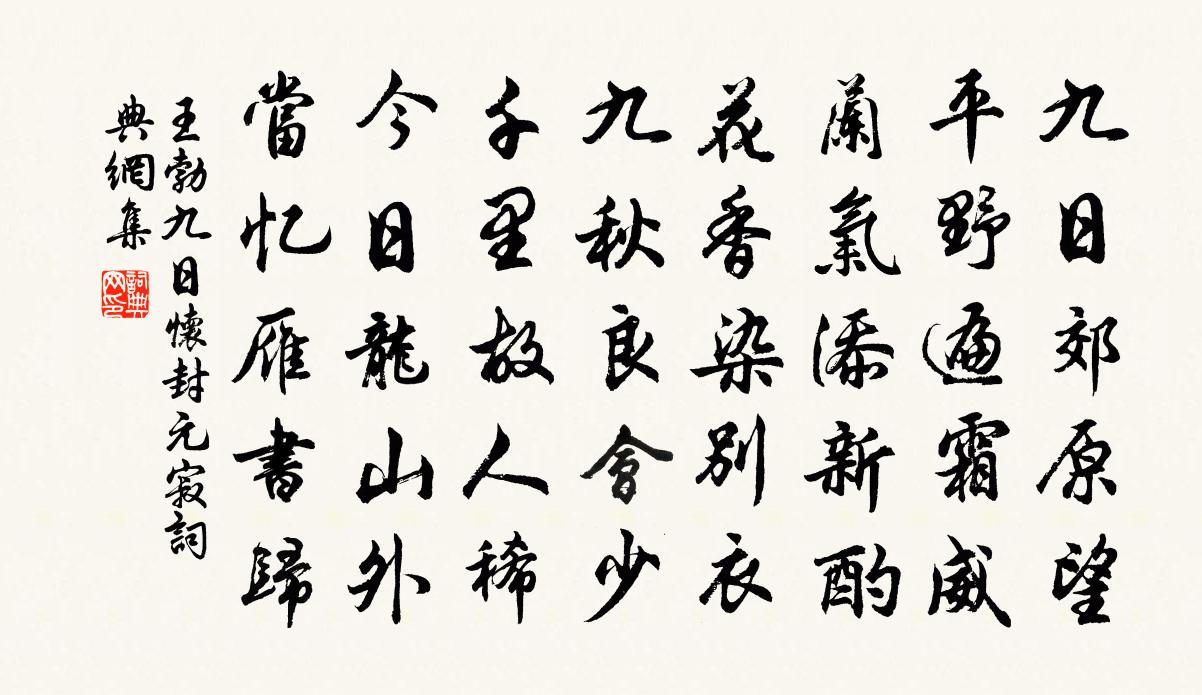 九日郊原望
平野遍霜威
蘭氣添新酌
花香染別衣
九秋良會少
千里故人稀
今日龍山外
當忆雁書歸
王勃九日懷封元寂詞
典網集
詞典
网印